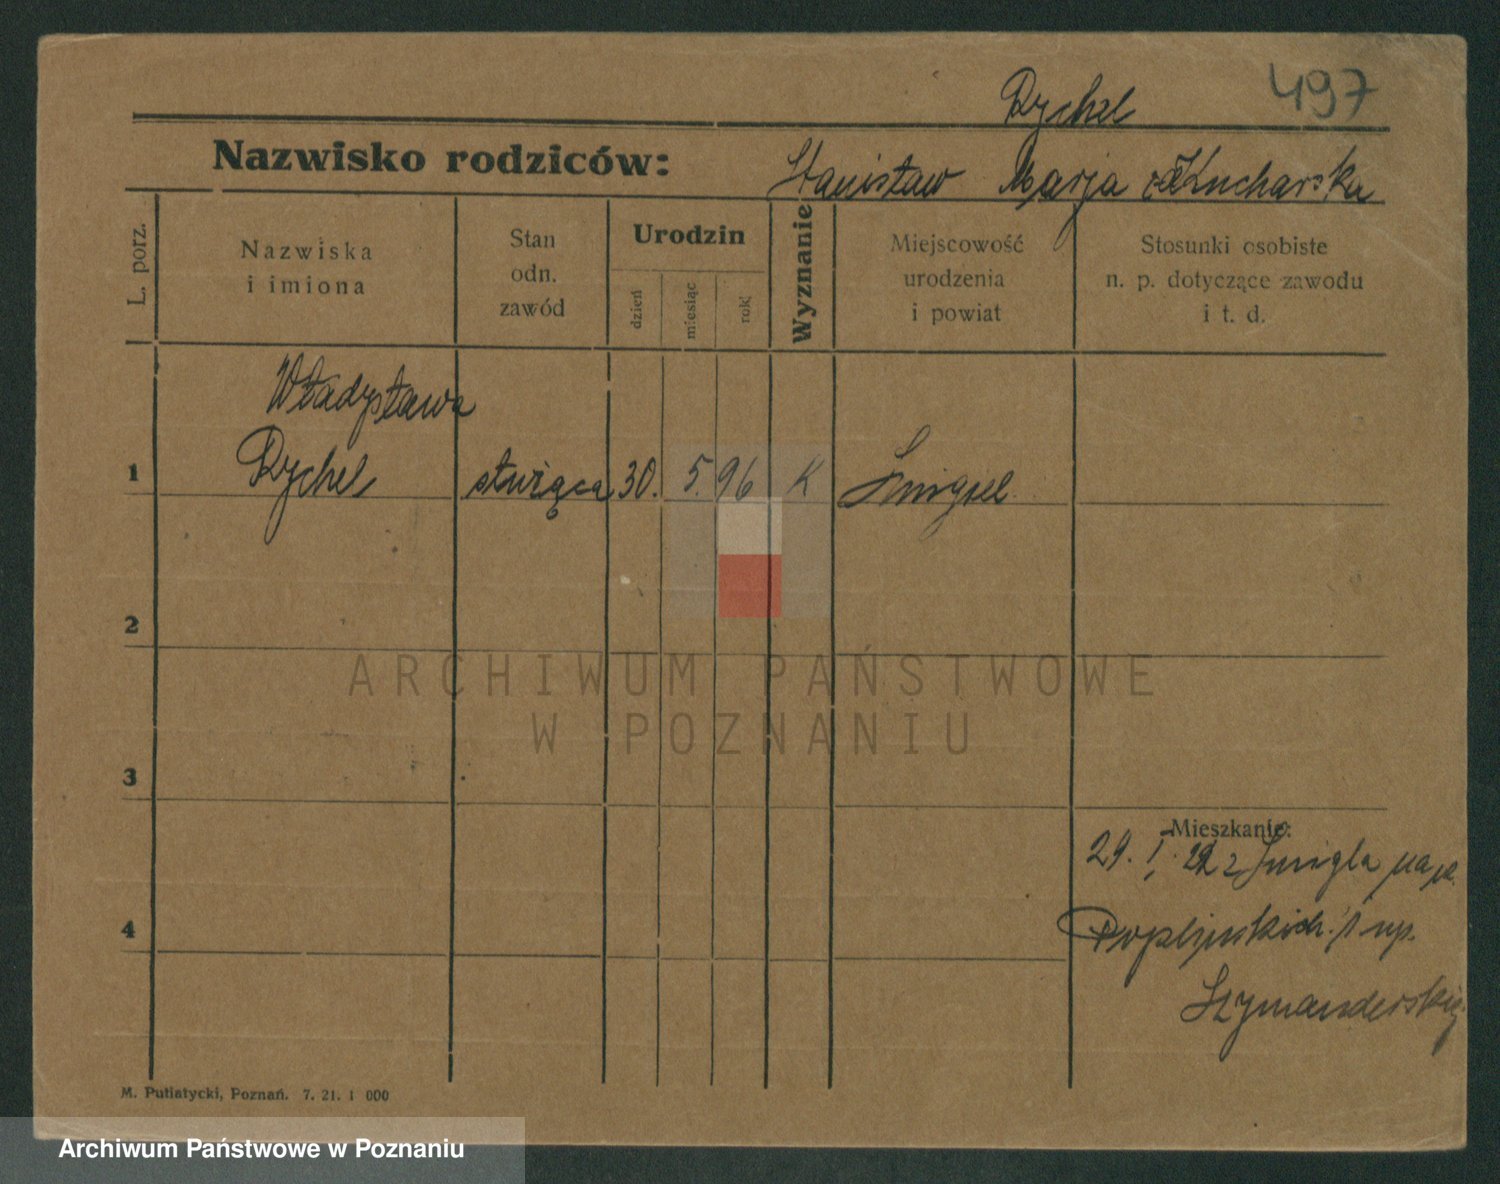 Rychel 497
Nazwisko rodziców: Stanisław Marja
L. porz.
Nazwiska
i imiona
Stan
odn.
zawód
Urodzin
dzień
miesiąc
rok
Wyznanie
Miejscowość
urodzenia
i powiat
Stosunki osobiste
n. p. dotyczące zawodu
i t. d.
Władysława
1 Rychel służąca 30. 5. 96 K Śmigiel
2
ARCHIWUM PAŃSTWOWE
W POZNANIU
3
Mieszkanie:
29. I. 22 z Śmigla
4
M. Putiatycki, Poznań. 7. 21. 1 000
Archiwum Państwowe w Poznaniu